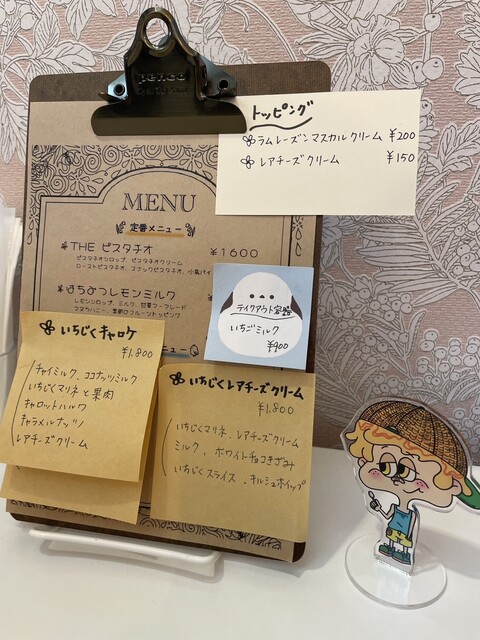 penco
トッピング
ラムレーズンマスカルクリーム ¥200
レアチーズクリーム ¥150
MENU
定番メニュー
THE ピスタチオ ¥1600
ピスタチオシロップ、ピスタチオクリーム
ローストピスタチオ、スナックピスタチオ、小鳥パイ
はちみつレモンミルク ¥
レモンシロップ、ミルク、甘夏マーマレード
テイクアウト容器
いちごミルク
¥900
いちじくキャロケ
¥1.800
チャイミルク、ココナッツミルク
いちじくマリネと果肉
キャロットハルワ
キャラメルナッツ
レアチーズクリーム
いちじくレアチーズクリーム
¥1.800
いちじくマリネ、レアチーズクリーム
ミルク、ホワイトチョコきざみ
いちじくスライス、キルシュホイップ